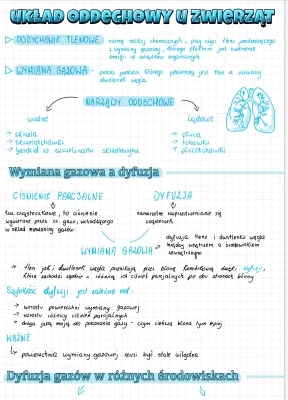 UKŁAD ODDECHOWY U ZWIERZĄT
ODDYCHANIE TLENOWE szereg reakcji chemicznych, przy użyciu tlenu pochodzącego
z wymiany gazowej, którego efektem jest uwolnienie
energii w związków organicznych
WYMIANA GAZOWA proces podczas którego pobierany jest tlen a usuwany
dwutlenek węgla
NARZĄDY ODDECHOWE
wodne
lądowe
→ skrzela
→ płuca
→ skrzelotchawki
→ tchawki
→ gardziel ze szczelinami skrzelowymi
→ płucotchawki
Wymiana gazowa a dyfuzja
CIŚNIENIE PARCJALNE
DYFUZJA
tzw. cząsteczkowe, to ciśnienie
samorzutne rozprzestrzenianie się
wywierane przez cz. gazu, wchodzącego
cząsteczek
w skład mieszaniny gazów.
WYMIANA GAZOWA
dyfuzja tlenu i dwutlenku węgla
między wnętrzem a środowiskiem
zewnętrznym
→ tlen jak i dwutlenek węgla przenikają przez błonę komórkową dzięki dyfuzji,
która zachodzi zgodnie z różnicą ich ciśnień parcjalnych po obu stronach błony
Szybkość dyfuzji jest zależna od:
→ wzrostu powierzchni wymiany gazowej
→ wzrostu różnicy ciśnień parcjalnych
→ droga jaką mają do pokonania gazy - czym cieńsza błona tym lepiej
WAŻNE
↳ powierzchnia wymiany gazowej musi być stale wilgotna
Dyfuzja gazów w różnych środowiskach